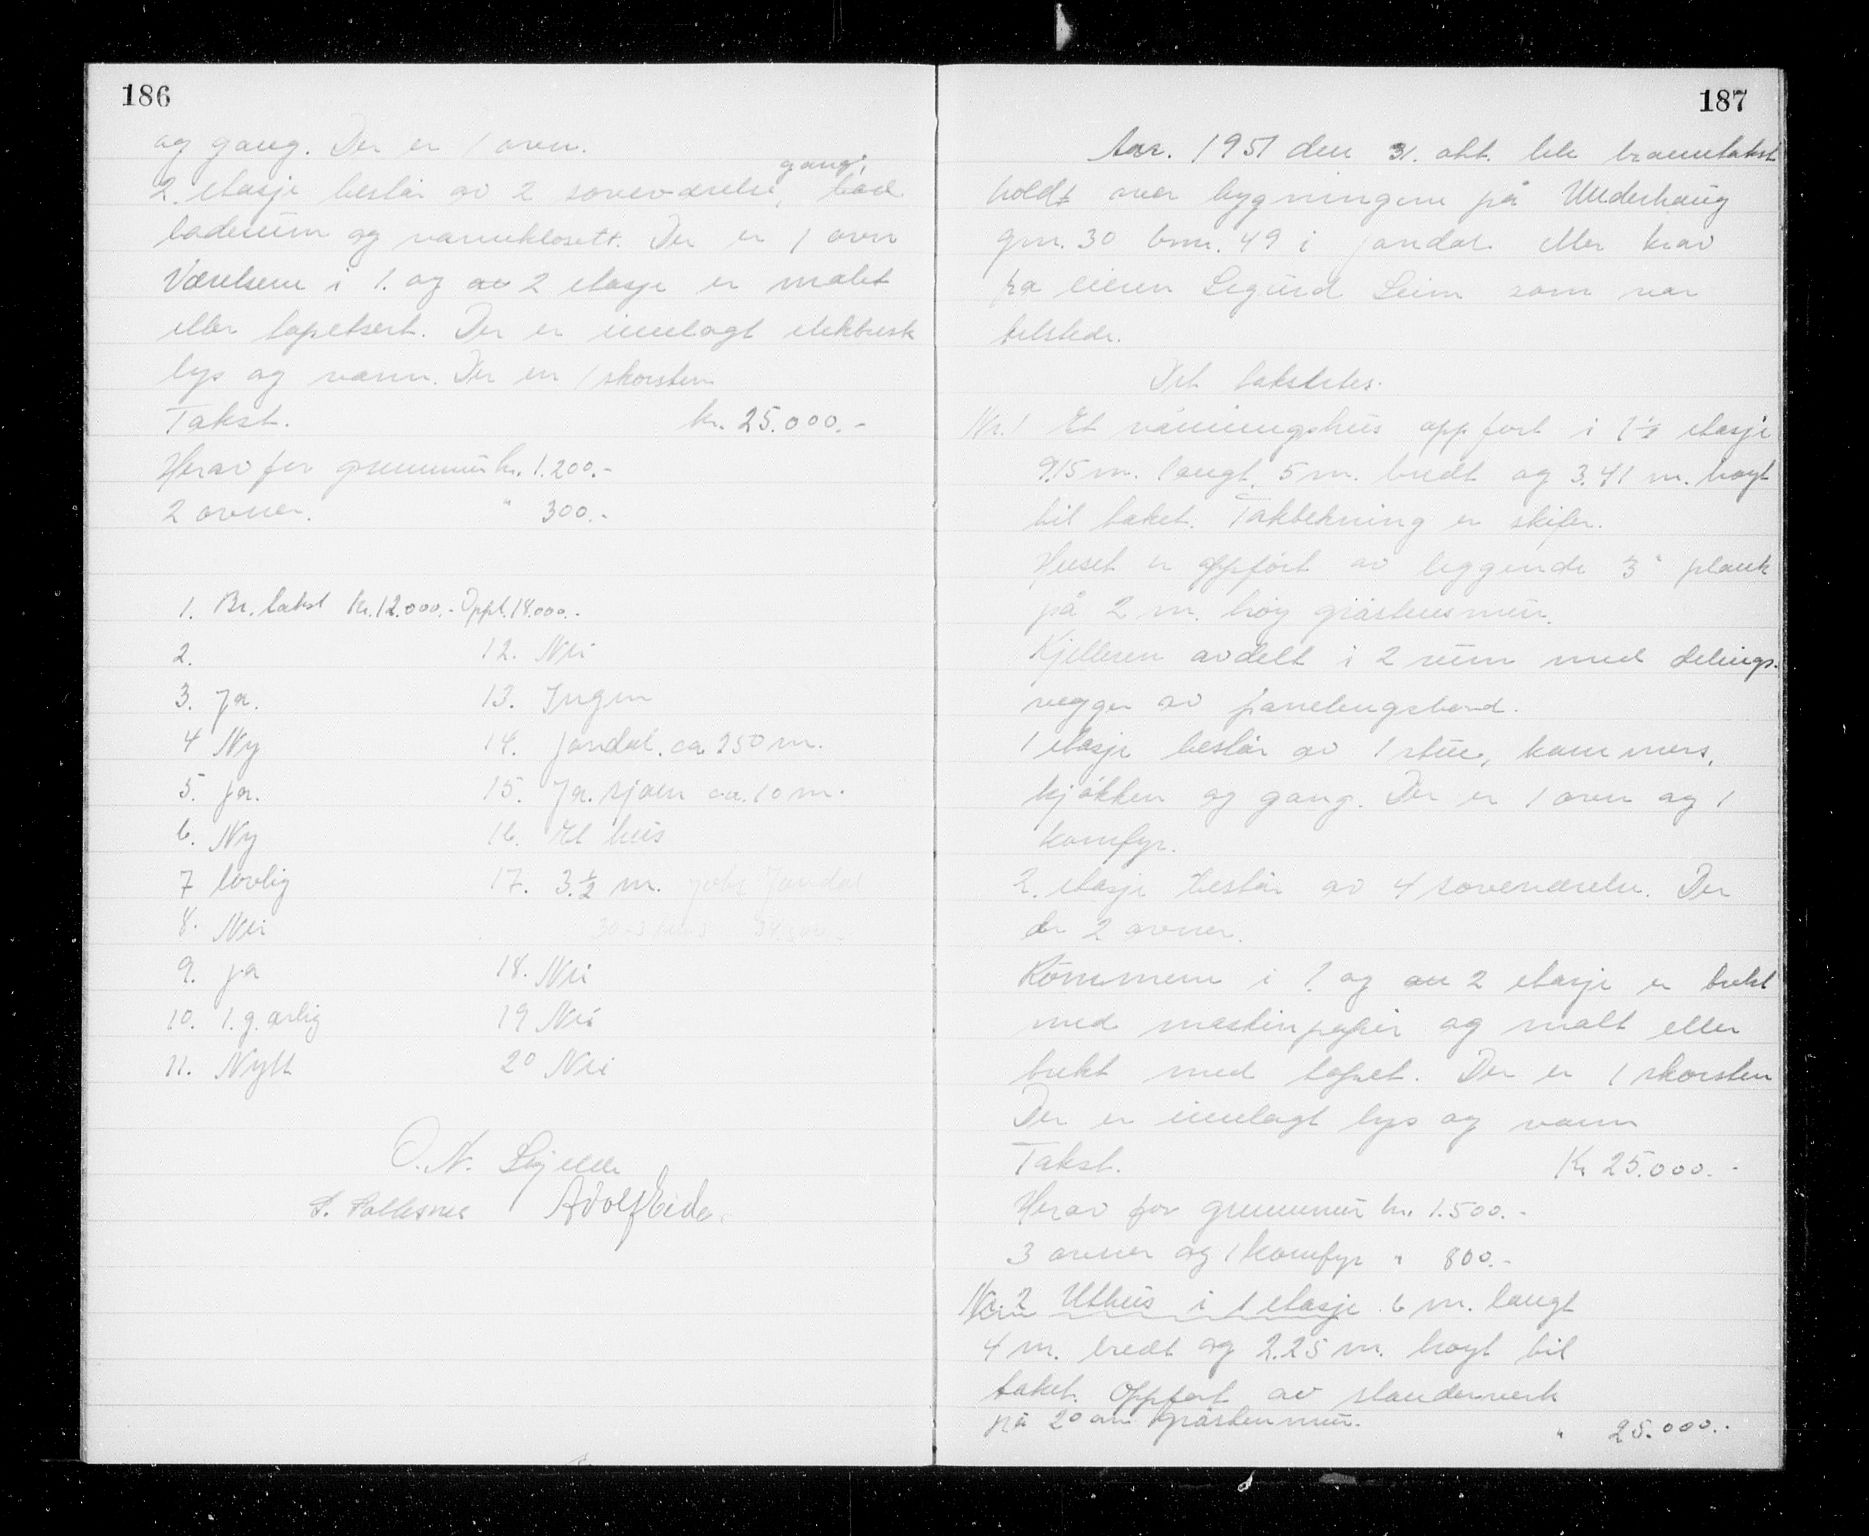 186
og gang. Der er 1 ovn.
gang,
2. etasje består av 2 soveværelse, bod
baderum og vannklosett. Der er 1 ovn
Værelsene i 1. og 2 etasje er malet
eller tapetsert. Der er innlagt elektrisk
lys og vann. Der er 1 skorsten
Takst. kr. 25.000.-
Herav for grunnmur kr. 1.200.-
2 ovner. " 300.-
1. Br. takst Kr. 12.000.- Oppt. 18.000.-
2. 12. Nei
3. Ja. 13. Ingen
4 Ny 14. Jondal. ca 250 m.
5. Ja. 15. Ja. sjøen ca. 10 m.
6. Ny 16. Et hus
7 lovlig 17. 3 ½ m. Jondal
8. Nei
9. Ja 18. Nei
10. 1. g. årlig 19 Nei
11. Nytt 20 Nei
O. N.
Adolf Eide.
187
Aar. 1951 den 31. okt. ble branntakst
holdt over bygningene på Underhaug
gnr. 30 bnr. 49 i Jondal etter krav
fra eieren Sigurd Leim som var
tilstede.
Det taksteres.
Nr. 1 Et våningshus oppført i 1 ½ etasje
9,15 m. langt, 5 m. bredt og 3.41 m. høyt
til taket. Taktekning er skifer.
Huset er oppført av liggende 3" plank
på 2 m. høy gråstensmur.
Kjelleren avdelt i 2 rum med delings-
vegger av panelingsbord.
1 etasje består av 1 stue, kammers,
kjøkken og gang. Der er 1 ovn og 1
komfyr.
2. etasje består av 4 soveværelse. Der
er 2 ovner.
Rommene i 1. og 2 etasje er trekt
med maskinpapir og malt eller
trekt med tapet. Der er 1 skorsten
Der er innlagt lys og vann
Takst. Kr 25.000.-
Herav for grunnmur kr. 1.500.-
3 ovner og 1 komfyr " 800.-
Nr. 2 Uthus i 1 etasje 6 m. langt
4 m. bredt og 2.25 m. høyt til
taket. Oppført av standerverk
på 20 cm gråstenmur.
" 25.000.-